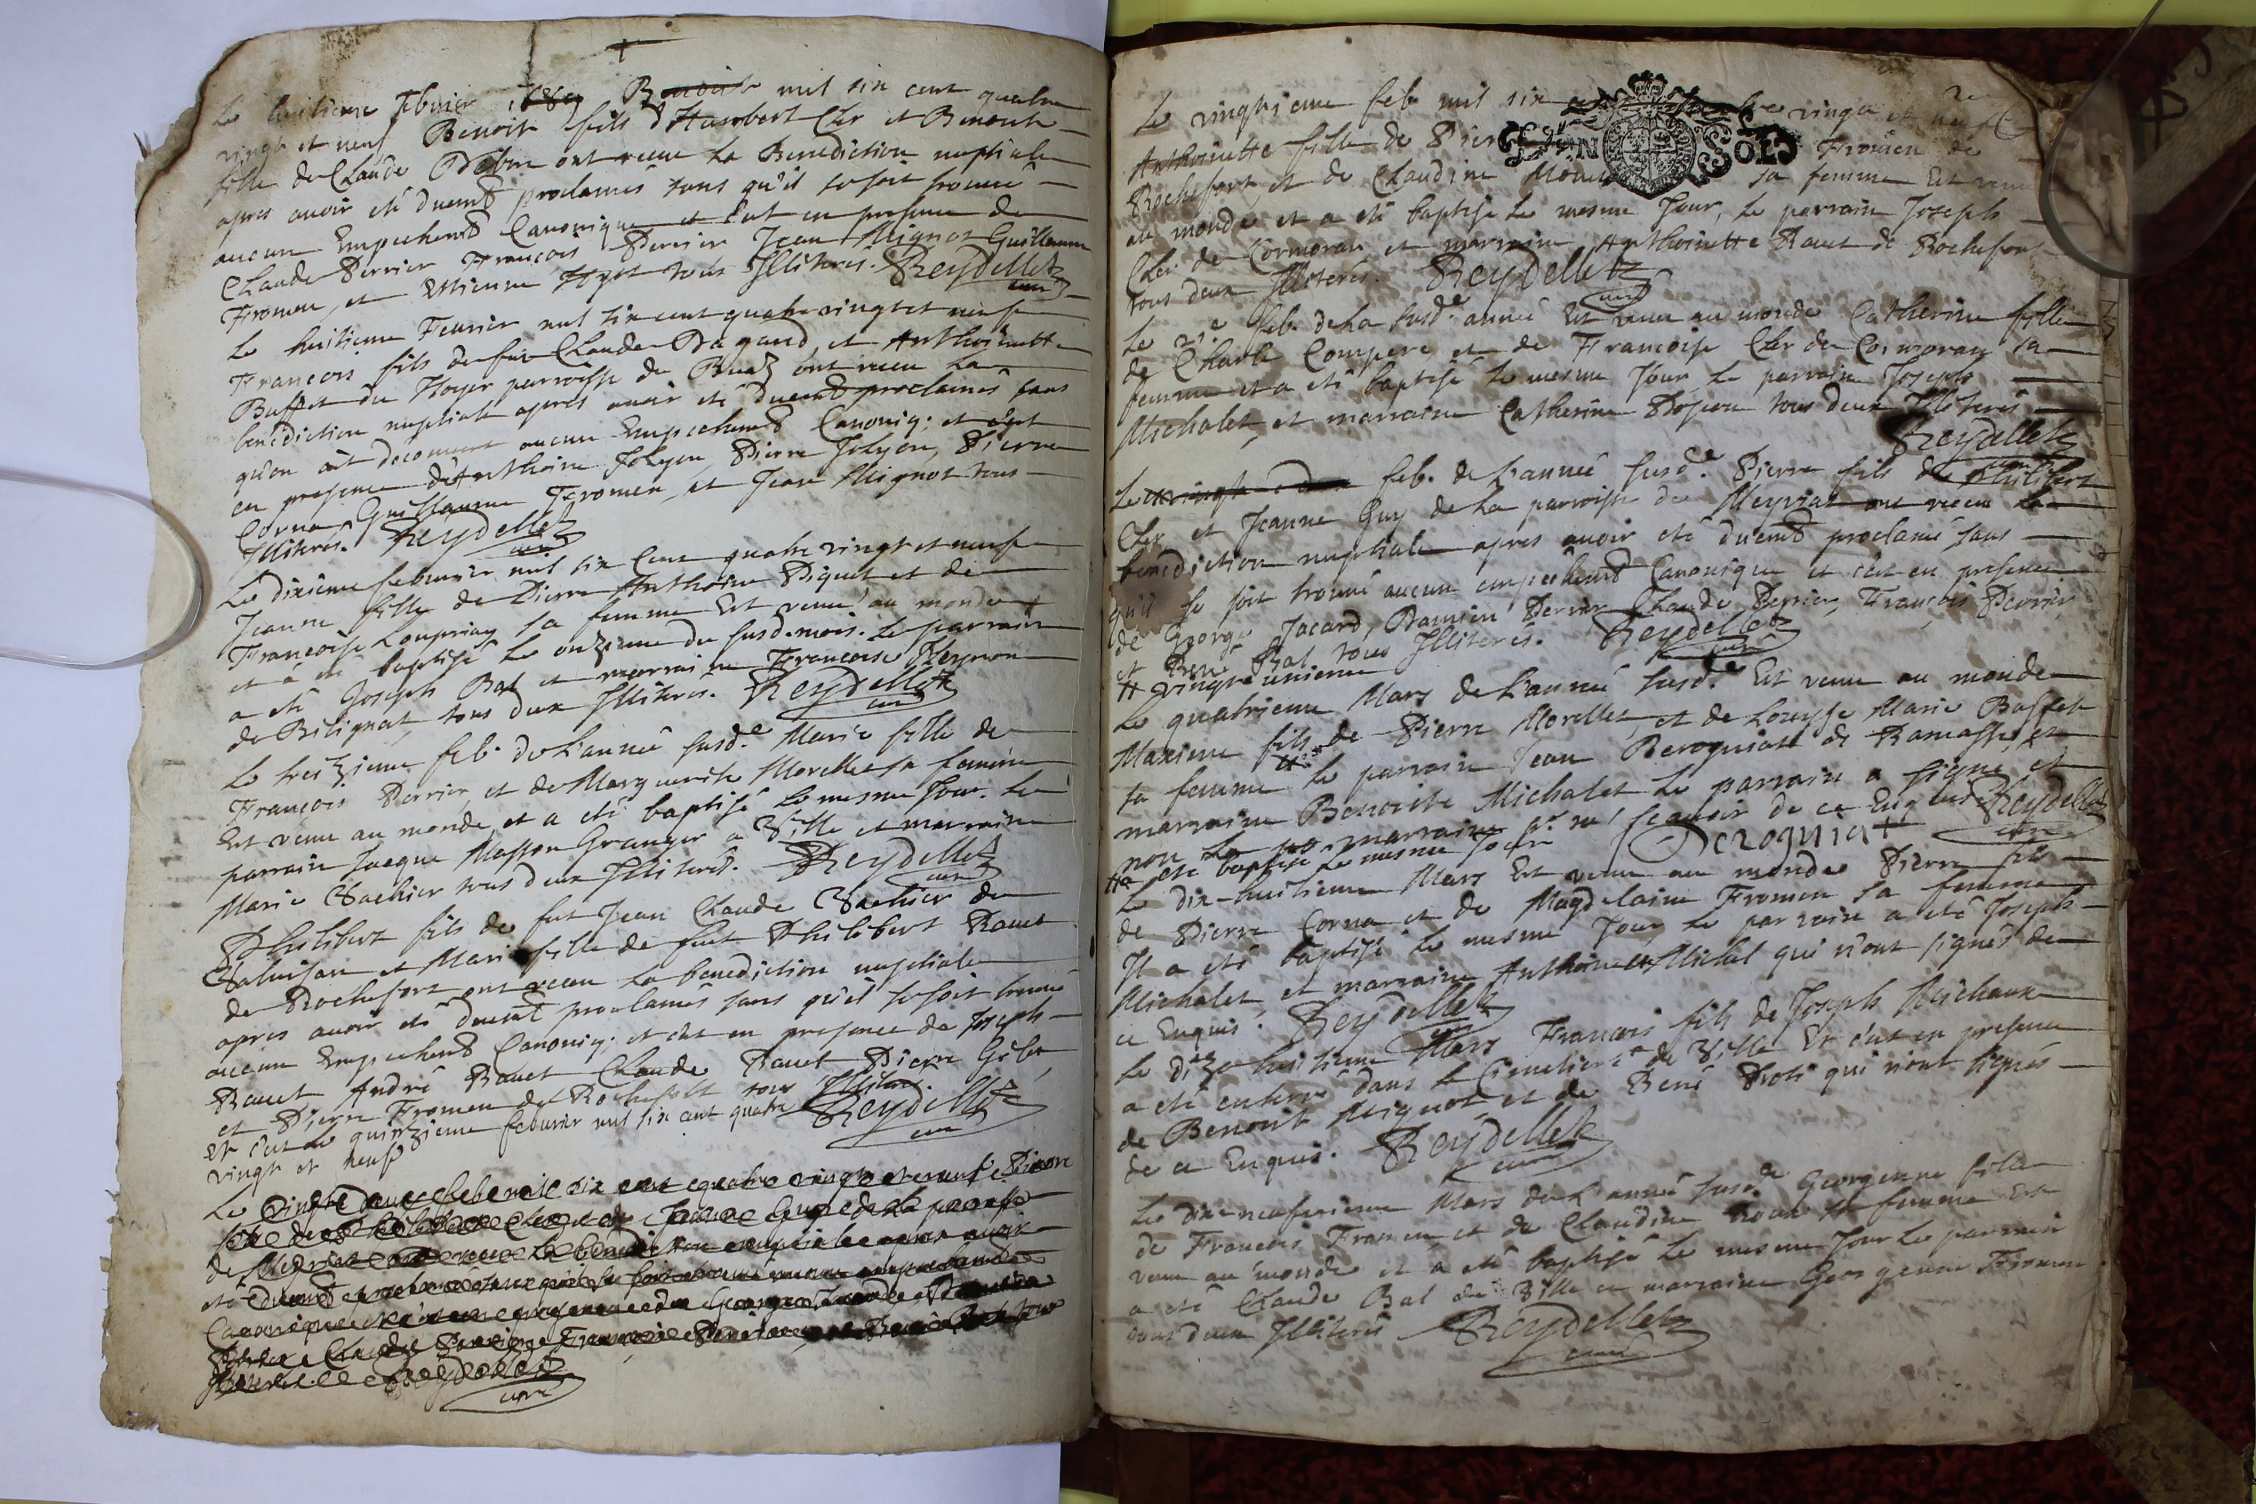 Le huitieme febvrier 1689 Benoist mil six cent quatre
vingt et neuf Benoist fils d'Humbert Cler et Benoite
fille de Claude ont receu la Benediction nuptiale
apres avoir eté duemt proclamés sans qu'il se soit trouvé
aucun Empechemt Canonique et c'est en presence de
Claude Perrier François Perrier Jean Mignot Guillaume
Fromen, et Estienne tous Illiterés. Reydellet
curé
Le huitieme Feurier mil six cent quatre vingt et neuf
François fils de feu Claude Dagand, et Anthoinette
Buffet du parroisse de ont receu la
benediction nuptiale apres avoir eté duemt proclamés sans
qu'on ait decouvert aucun Empechemt Canoniq; et c'est
en presence d'Anthoine Jolyon, Pierre Jolyon, Pierre
Corna, Guillaume Fromen, et Jean Mignot tous
Illiterés. Reydellet
curé
Le dixieme febuvrier mil six Cent quatre vingt et neuf
Jeanne fille de Pierre Anthoine Piquet et de
Francoise sa femme Est venue au monde
et a eté baptisé le onzieme du susd. mois. Le parrain
a eté Joseph Bal et marraine Francoise
de Bilignat, tous deux Illiterés. Reydellet
curé
Le treizieme feb. de L'année susd.e Marie fille de
François Perrier, et de Marguerite Morellet sa femme
Est venue au monde, et a eté baptisé Le mesme Jour. Le
parrain Jacque Masson Granger a Ville et marraine
Marie Vachier tous deux Illiterés. Reydellet
curé
Philibert fils de fut Jean Claude Vachier de
et Marie fille de fut Philibert Ravet
de Rochefort ont receu la benediction nuptiale
apres avoir eté duemt proclamés sans qu'il se soit trouvé
aucun Empechemt Canoniq; et c'est en presence de Joseph
Ravet André Ravet Claude Ravet Pierre
et Pierre Fromen de Rochefort tous Illiterés.
Et c'est Le quinzieme febuvrier mil six cent quatre Reydellet
vingt et neuf curé
Le vingte deux feb mil six cent quatre vingt et neuf Pierre
fils de Philibert Cler et de Jeanne Guy de la paroisse
de Meyriat ont receu La benediction nuptiale apres avoir
eté duemt proclamés sans qu'il se soit trouvé aucun empechemt
Canonique et c'est en presence de George Jacard, Damien
Perrier Claude Perrier, François Perrier, et René Bal tous
Illiterés. Reydellet
curé
Le vingtieme feb. mil six vingt et neuf
Anthoinette fille de Pierre Fromen de
Rochefort, et de Claudine sa femme Est venue
au monde et a eté baptisé Le mesme Jour, Le parrain Joseph
Cler de Cormoran et marraine Anthoinette Ravet de Rochefort
tous deux Illiterés. Reydellet
curé
Le 21e feb. de La susd.e année Est venue au monde Catherine fille
de Charle Compere, et de Francoise Cler de Cormoran sa
femme et a eté baptisé Le mesme Jour Le parrain Joseph
Michalet, et marraine Catherine tous deux Illiterés
Reydellet
curé
Le feb. de L'année susd.e Pierre fils de Philibert
Cler et Jeanne Guy de La parroisse de Meyriat ont receu La
benediction nuptiale apres avoir eté duemt proclamé sans
qu'il se soit trouvé aucun empechemt Canonique et c'est en presence
de George Jacard, Damien Perrier Claude Perrier, François Perrier,
et René Bal tous Illiterés. Reydellet
# vingte unieme curé
Le quatrieme Mars de L'année susd.e Est venu au monde
Maxime fils de Pierre Morellet, et de Louyse Marie Buffet
sa femme #a le parrain Jean Beroquiat de Ramasse, et
marraine Benoite Michalet Le parrain a signé, et
non La marraine pr ne scavoir de ce Enquis Reydellet
#a eté baptisé Le mesme Jour Deroquiat curé
Le dix-huitieme Mars Est venu au monde Pierre fils
de Pierre Corna et de Magdelaine Fromen sa femme
Il a eté baptisé Le mesme Jour, Le parrain a eté Joseph
Michalet, et marraine Anthoinette Michel qui n'ont signés de
ce Enquis. Reydellet
curé
Le dize huitieme Mars François fils de Joseph Michaux
a eté enterré dans Le Cimetiere de Ville Et c'est en presence
de Benoit Mignot, et de René qui n'ont signés
de ce Enquis. Reydellet
curé
Le dix-neufvieme Mars de L'année susd.e Georgenne fille
de François Fromen, et de Claudine sa femme Est
venue au monde et a eté baptisé Le mesme Jour Le parrain
a eté Claude Bal de Ville et marraine Georgenne Fromen
tous deux Illiterés Reydellet
curé